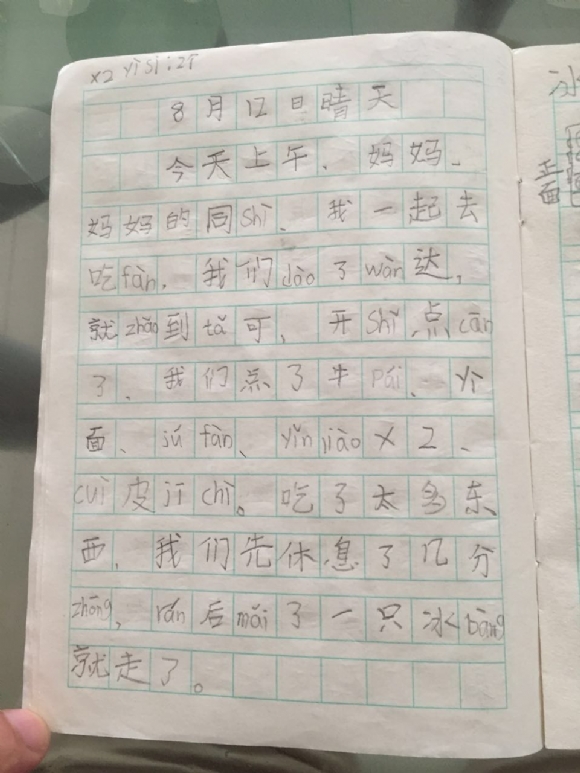 ×2 yì sī :
8月12日晴天
今天上午、妈妈、
妈妈的同shì、我一起去
吃fàn，我们dào了wàn达，
就zhǎo到tǎ可，开shǐ点cān
了、我们点了牛pái、
面、jú fàn、yǐn jiào ×2、
cuì皮jī chì。吃了太多东
西，我们先休息了几分
zhōng，rán后mǎi了一只冰bàng
就走了。
冰
正面